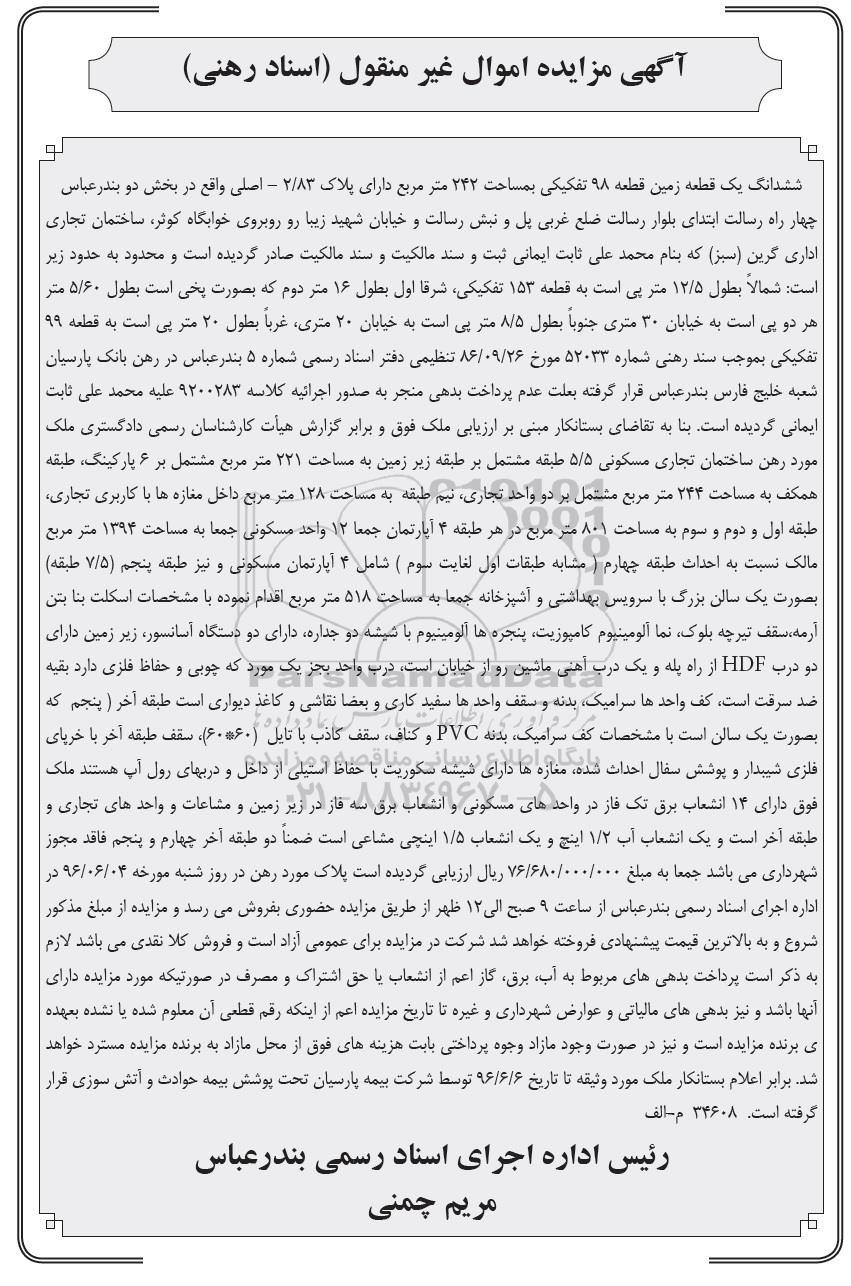 آگهی مزایده اموال غیر منقول (اسناد رهنی)
ششدانگ یک قطعه زمین قطعه ۹۸ تفکیکی بمساحت ۲۴۲ متر مربع دارای پلاک ۲/۸۳ – اصلی واقع در بخش دو بندرعباس
چهار راه رسالت ابتدای بلوار رسالت ضلع غربی پل و نبش رسالت و خیابان شهید زیبا رو روبروی خوابگاه کوثر، ساختمان تجاری
اداری گرین (سبز) که بنام محمد علی ثابت ایمانی ثبت و سند مالکیت و سند مالکیت صادر گردیده است و محدود به حدود زیر
است: شمالاً بطول ۱۲/۵ متر پی است به قطعه ۱۵۳ تفکیکی، شرقا اول بطول ۱۶ متر دوم که بصورت پخی است بطول ۵/۶۰ متر
هر دو پی است به خیابان ۳۰ متری جنوباً بطول ۸/۵ متر پی است به خیابان ۲۰ متری، غرباً بطول ۲۰ متر پی است به قطعه ۹۹
تفکیکی بموجب سند رهنی شماره ۵۲۰۳۳ مورخ ۸۶/۰۹/۲۶ تنظیمی دفتر اسناد رسمی شماره ۵ بندرعباس در رهن بانک پارسیان
شعبه خلیج فارس بندرعباس قرار گرفته بعلت عدم پرداخت بدهی منجر به صدور اجرائیه کلاسه ۹۲۰۰۲۸۳ علیه محمد علی ثابت
ایمانی گردیده است. بنا به تقاضای بستانکار مبنی بر ارزیابی ملک فوق و برابر گزارش هیأت کارشناسان رسمی دادگستری ملک
مورد رهن ساختمان تجاری مسکونی ۵/۵ طبقه مشتمل بر طبقه زیر زمین به مساحت ۲۲۱ متر مربع مشتمل بر ۶ پارکینگ، طبقه
همکف به مساحت ۲۴۴ متر مربع مشتمل بر دو واحد تجاری، نیم طبقه به مساحت ۱۲۸ متر مربع داخل مغازه ها با کاربری تجاری،
طبقه اول و دوم و سوم به مساحت ۸۰۱ متر مربع در هر طبقه ۴ آپارتمان جمعا ۱۲ واحد مسکونی جمعا به مساحت ۱۳۹۴ متر مربع
مالک نسبت به احداث طبقه چهارم ( مشابه طبقات اول لغایت سوم ) شامل ۴ آپارتمان مسکونی و نیز طبقه پنجم (۷/۵ طبقه)
بصورت یک سالن بزرگ با سرویس بهداشتی و آشپزخانه جمعا به مساحت ۵۱۸ متر مربع اقدام نموده با مشخصات اسکلت بنا بتن
آرمه،سقف تیرچه بلوک، نما آلومینیوم کامپوزیت، پنجره ها آلومینیوم با شیشه دو جداره، دارای دو دستگاه آسانسور، زیر زمین دارای
دو درب HDF از راه پله و یک درب آهنی ماشین رو از خیابان است، درب واحد بجز یک مورد که چوبی و حفاظ فلزی دارد بقیه
ضد سرقت است، کف واحد ها سرامیک، بدنه و سقف واحد ها سفید کاری و بعضا نقاشی و کاغذ دیواری است طبقه آخر ( پنجم که
بصورت یک سالن است با مشخصات کف سرامیک، بدنه PVC و کناف، سقف کاذب با تایل (۶۰*۶۰)، سقف طبقه آخر با خرپای
فلزی شیبدار و پوشش سفال احداث شده، مغازه ها دارای شیشه سکوریت با حفاظ استیلی از داخل و دربهای رول آپ هستند ملک
فوق دارای ۱۴ انشعاب برق تک فاز در واحد های مسکونی و انشعاب برق سه فاز در زیر زمین و مشاعات و واحد های تجاری و
طبقه آخر است و یک انشعاب آب ۱/۲ اینچ و یک انشعاب ۱/۵ اینچی مشاعی است ضمناً دو طبقه آخر چهارم و پنجم فاقد مجوز
شهرداری می باشد جمعا به مبلغ ۷۶/۶۸۰/۰۰۰/۰۰۰ ریال ارزیابی گردیده است پلاک مورد رهن در روز شنبه مورخه ۹۶/۰۶/۰۴ در
اداره اجرای اسناد رسمی بندرعباس از ساعت ۹ صبح الی۱۲ ظهر از طریق مزایده حضوری بفروش می رسد و مزایده از مبلغ مذکور
شروع و به بالاترین قیمت پیشنهادی فروخته خواهد شد شرکت در مزایده برای عمومی آزاد است و فروش کلا نقدی می باشد لازم
به ذکر است پرداخت بدهی های مربوط به آب، برق، گاز اعم از انشعاب یا حق اشتراک و مصرف در صورتیکه مورد مزایده دارای
آنها باشد و نیز بدهی های مالیاتی و عوارض شهرداری و غیره تا تاریخ مزایده اعم از اینکه رقم قطعی آن معلوم شده یا نشده بعهده
ی برنده مزایده است و نیز در صورت وجود مازاد وجوه پرداختی بابت هزینه های فوق از محل مازاد به برنده مزایده مسترد خواهد
شد. برابر اعلام بستانکار ملک مورد وثیقه تا تاریخ ۹۶/۶/۶ توسط شرکت بیمه پارسیان تحت پوشش بیمه حوادث و آتش سوزی قرار
گرفته است. ۳۴۶۰۸ م-الف
رئیس اداره اجرای اسناد رسمی بندرعباس
مریم چمنی
ParsNamadData
پایگاه اطلاع رسانی مناقصه و مزایده
۰۲۱-۸۸۳۴۹۶۷۰-۵